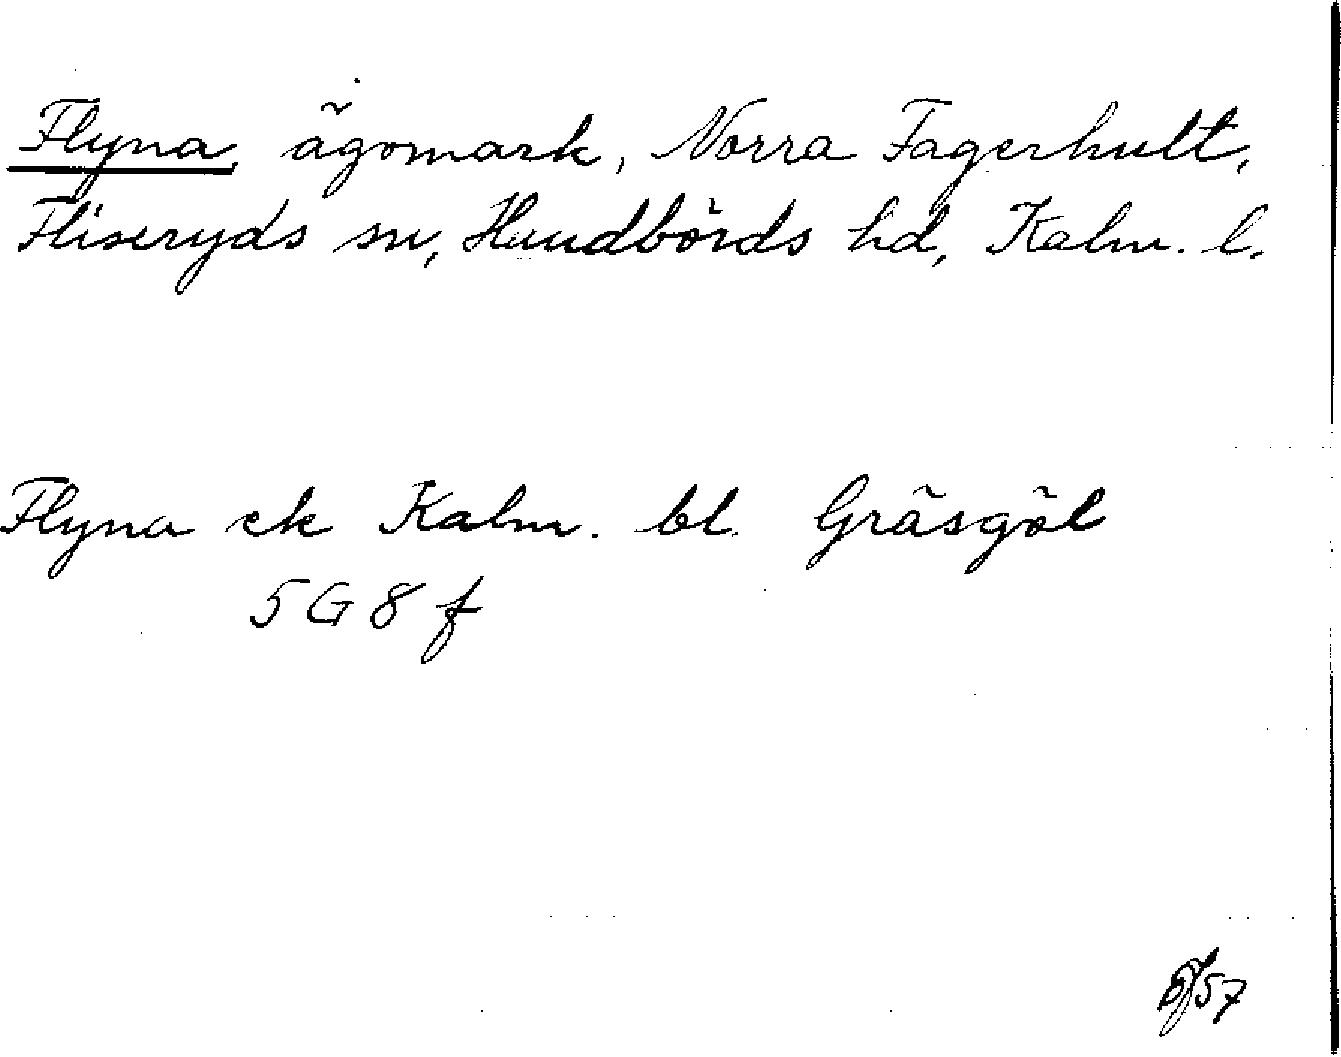 Flyna, ägomark, Norra Fagerhult,
Fliseryds sn, Handbörds hd, Kalm. l.
Flyna ek Kalm. bl. Gräsgöl
5 G 8 f
57